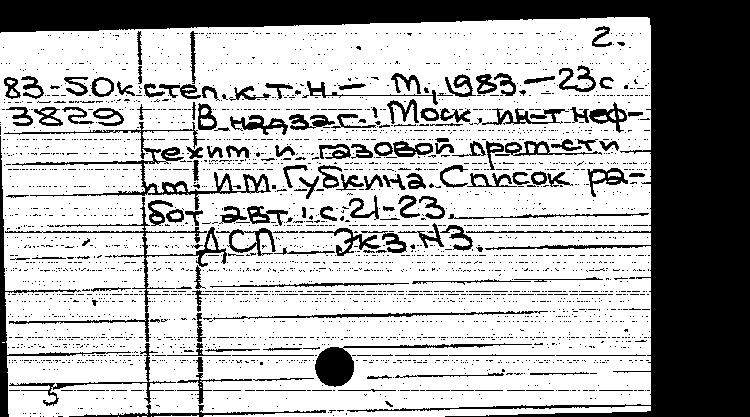 2.
83-50к степ. к.т.н. — М., 1983. — 23с.
3829 В надзаг.: Моск. ин-т неф-
техим. и газовой пром-сти
им. И.М. Губкина. Список ра-
бот авт.: с. 21-23.
ДСП. Экз. N3.
5